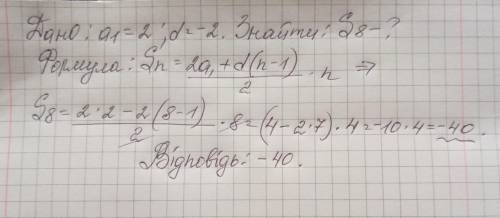 Дано: a₁=2; d=-2. Знайти: S₈-?
Формула: Sₙ = (2a₁+d(n-1))/2 · n ⇒
S₈ = (2·2-2(8-1))/2 · 8 = (4-2·7)·4 = -10·4 = -40.
Відповідь: -40.